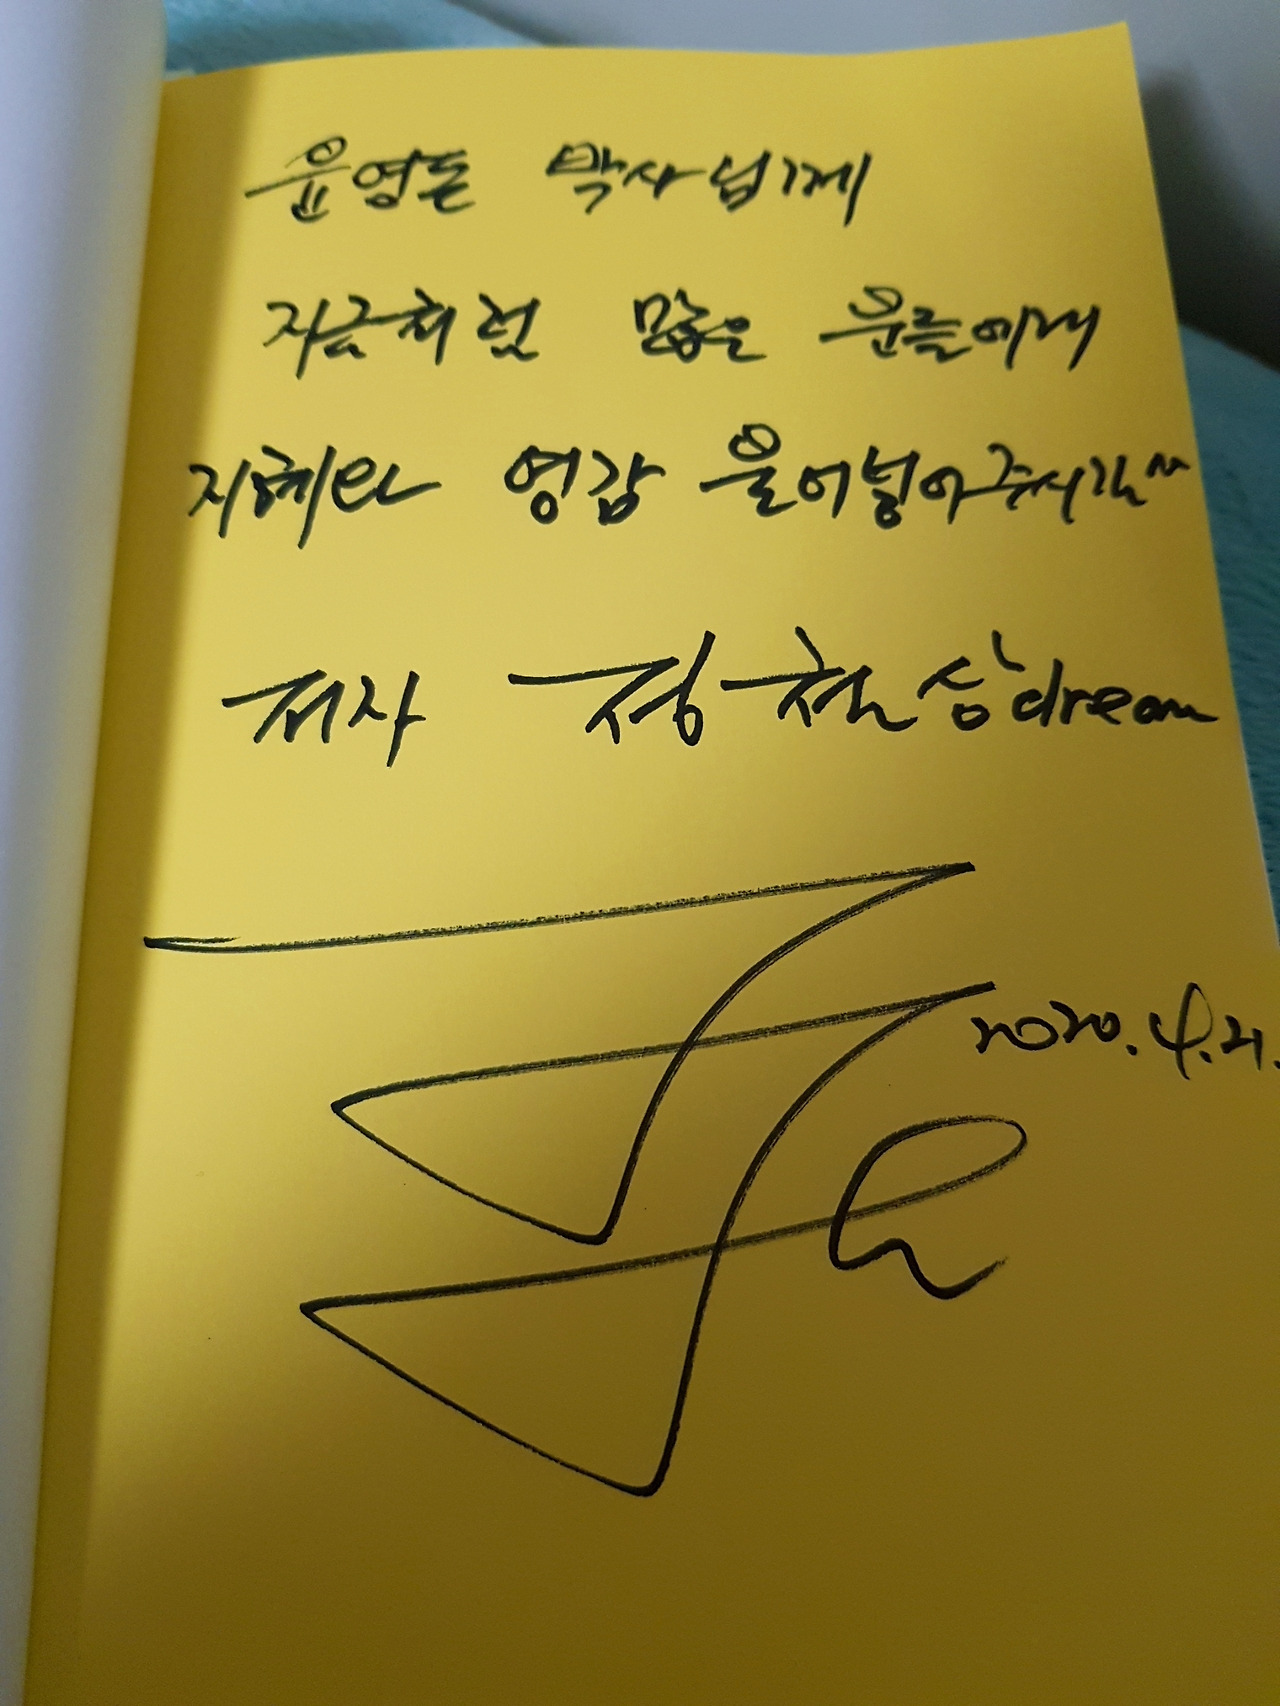 윤영돈 박사님께
지금처럼 많은 분들에게
지혜와 영감 불어넣어주시길^^
저자 정철상dream
2020.4.21.